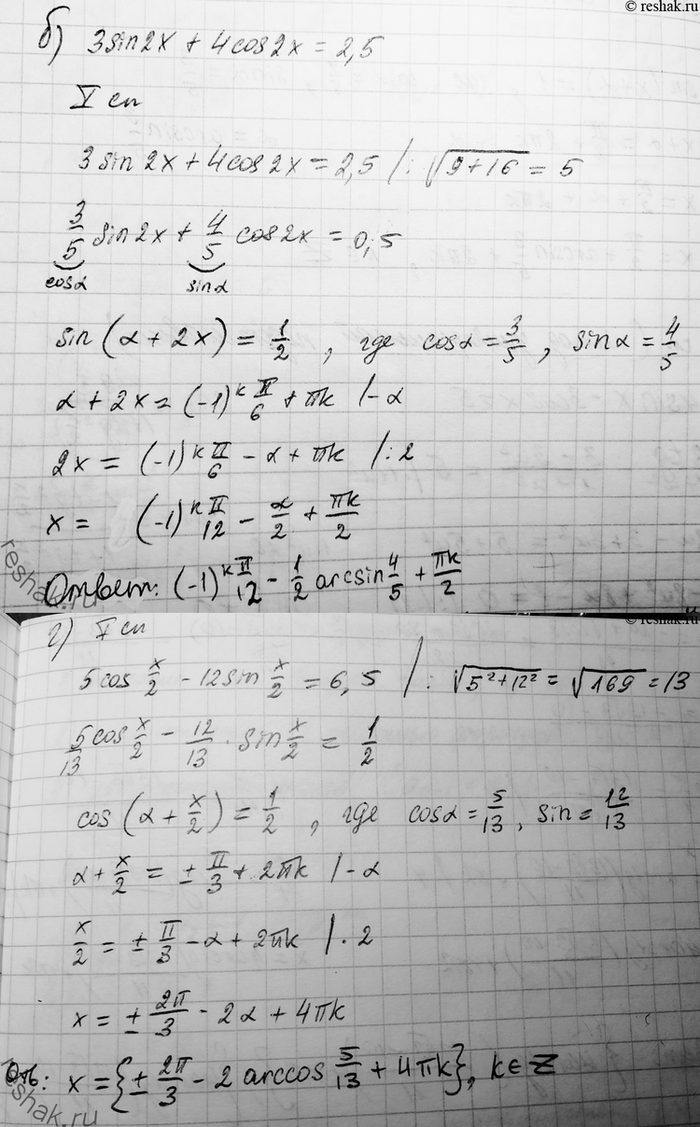 © reshak.ru
б) 3sin2x + 4cos2x = 2,5
V сп
3sin2x + 4cos2x = 2,5 /: √(9+16) = 5
3/5 sin2x + 4/5 cos2x = 0,5
cosα sinα
sin(α + 2x) = 1/2, где cosα = 3/5, sinα = 4/5
α + 2x = (-1)^k π/6 + πk /-α
2x = (-1)^k π/6 - α + πk /:2
x = (-1)^k π/12 - α/2 + πk/2
Ответ: (-1)^k π/12 - 1/2 arcsin 4/5 + πk/2
reshak.ru
© reshak.ru
г) V сп
5cos x/2 - 12sin x/2 = 6,5 /: √(5²+12²) = √169 = 13
5/13 cos x/2 - 12/13 · sin x/2 = 1/2
cos(α + x/2) = 1/2, где cosα = 5/13, sin = 12/13
α + x/2 = ± π/3 + 2πk /-α
x/2 = ± π/3 - α + 2πk /·2
x = ± 2π/3 - 2α + 4πk
Отв: x = {± 2π/3 - 2 arccos 5/13 + 4πk}, k∈Z
reshak.ru